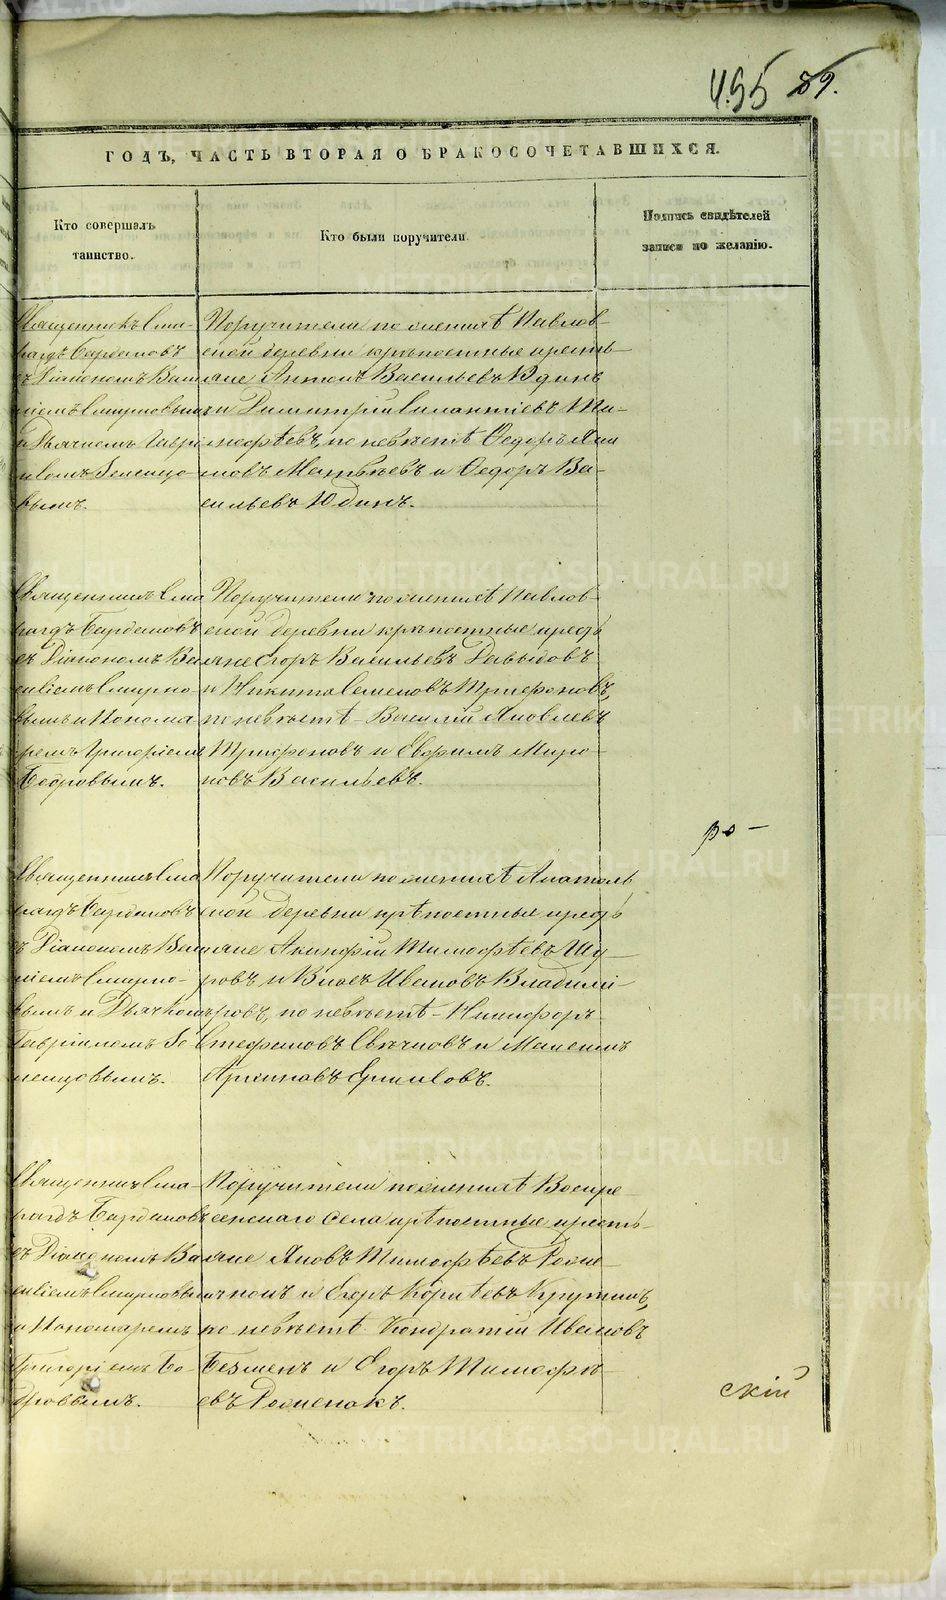 495 89.
ГОДЪ, ЧАСТЬ ВТОРАЯ О БРАКОСОЧЕТАВШИХСЯ.
Кто совершалъ
таинство.
Кто были поручители.
Подпись свидѣтелей
записи по желанію.
Священникъ Сма-
рагдъ Бардаковъ
съ Діакономъ Васи
ліемъ Смирновымъ
и Дьячкомъ Гаври
иломъ
вымъ.
Поручители по женихѣ Павлов-
ской деревни крѣпостные кресть-
яне Антонъ Васильевъ Юдинъ
и Димитрій Силантіевъ Ти-
мофѣевъ, по невѣстѣ Ѳедоръ Яки
мовъ Матвѣевъ и Ѳедоръ Ва-
сильевъ Юдинъ.
Священникъ Сма
рагдъ Бардаковъ
съ Діакономъ Ва
силіемъ Смирно-
вымъ и Понома
ремъ Григоріемъ
Бобровымъ.
Поручители по женихѣ Павлов-
ской деревни крѣпостные кресть
яне Егоръ Васильевъ Давыдовъ
и Никита Семеновъ Трифоновъ,
по невѣстѣ - Василій Яковлевъ
Трифоновъ и Евфимъ Миро-
новъ Васильевъ.
ро -
Священникъ Сма
рагдъ Бардаковъ
съ Діакономъ Васи
ліемъ Смирно-
вымъ и Дьячкомъ
Гавріиломъ
Поручители по женихѣ Анатоль
ской деревни крѣпостные кресть
яне Акинфій Тимофѣевъ Шу-
ровъ и Власъ Ивановъ Владимі-
ровъ, по невѣстѣ - Никифоръ
Стефановъ Свѣчновъ и Максимъ
Архиповъ Ермиловъ.
Священникъ Сма-
рагдъ Бардаковъ
съ Діакономъ Ва
силіемъ Смирновым
и Пономаремъ
Григоріемъ Бо-
бровымъ.
Поручители по женихѣ Воскре-
сенскаго села крѣпостные кресть-
яне Яковъ Тимофѣевъ Рома-
и Егоръ Корнѣевъ Крутиковъ,
по невѣстѣ Кондратій Ивановъ
Безменъ и Егоръ Тимофѣ-
евъ Романокъ.
скій
METRIKI.GASO-URAL.RU